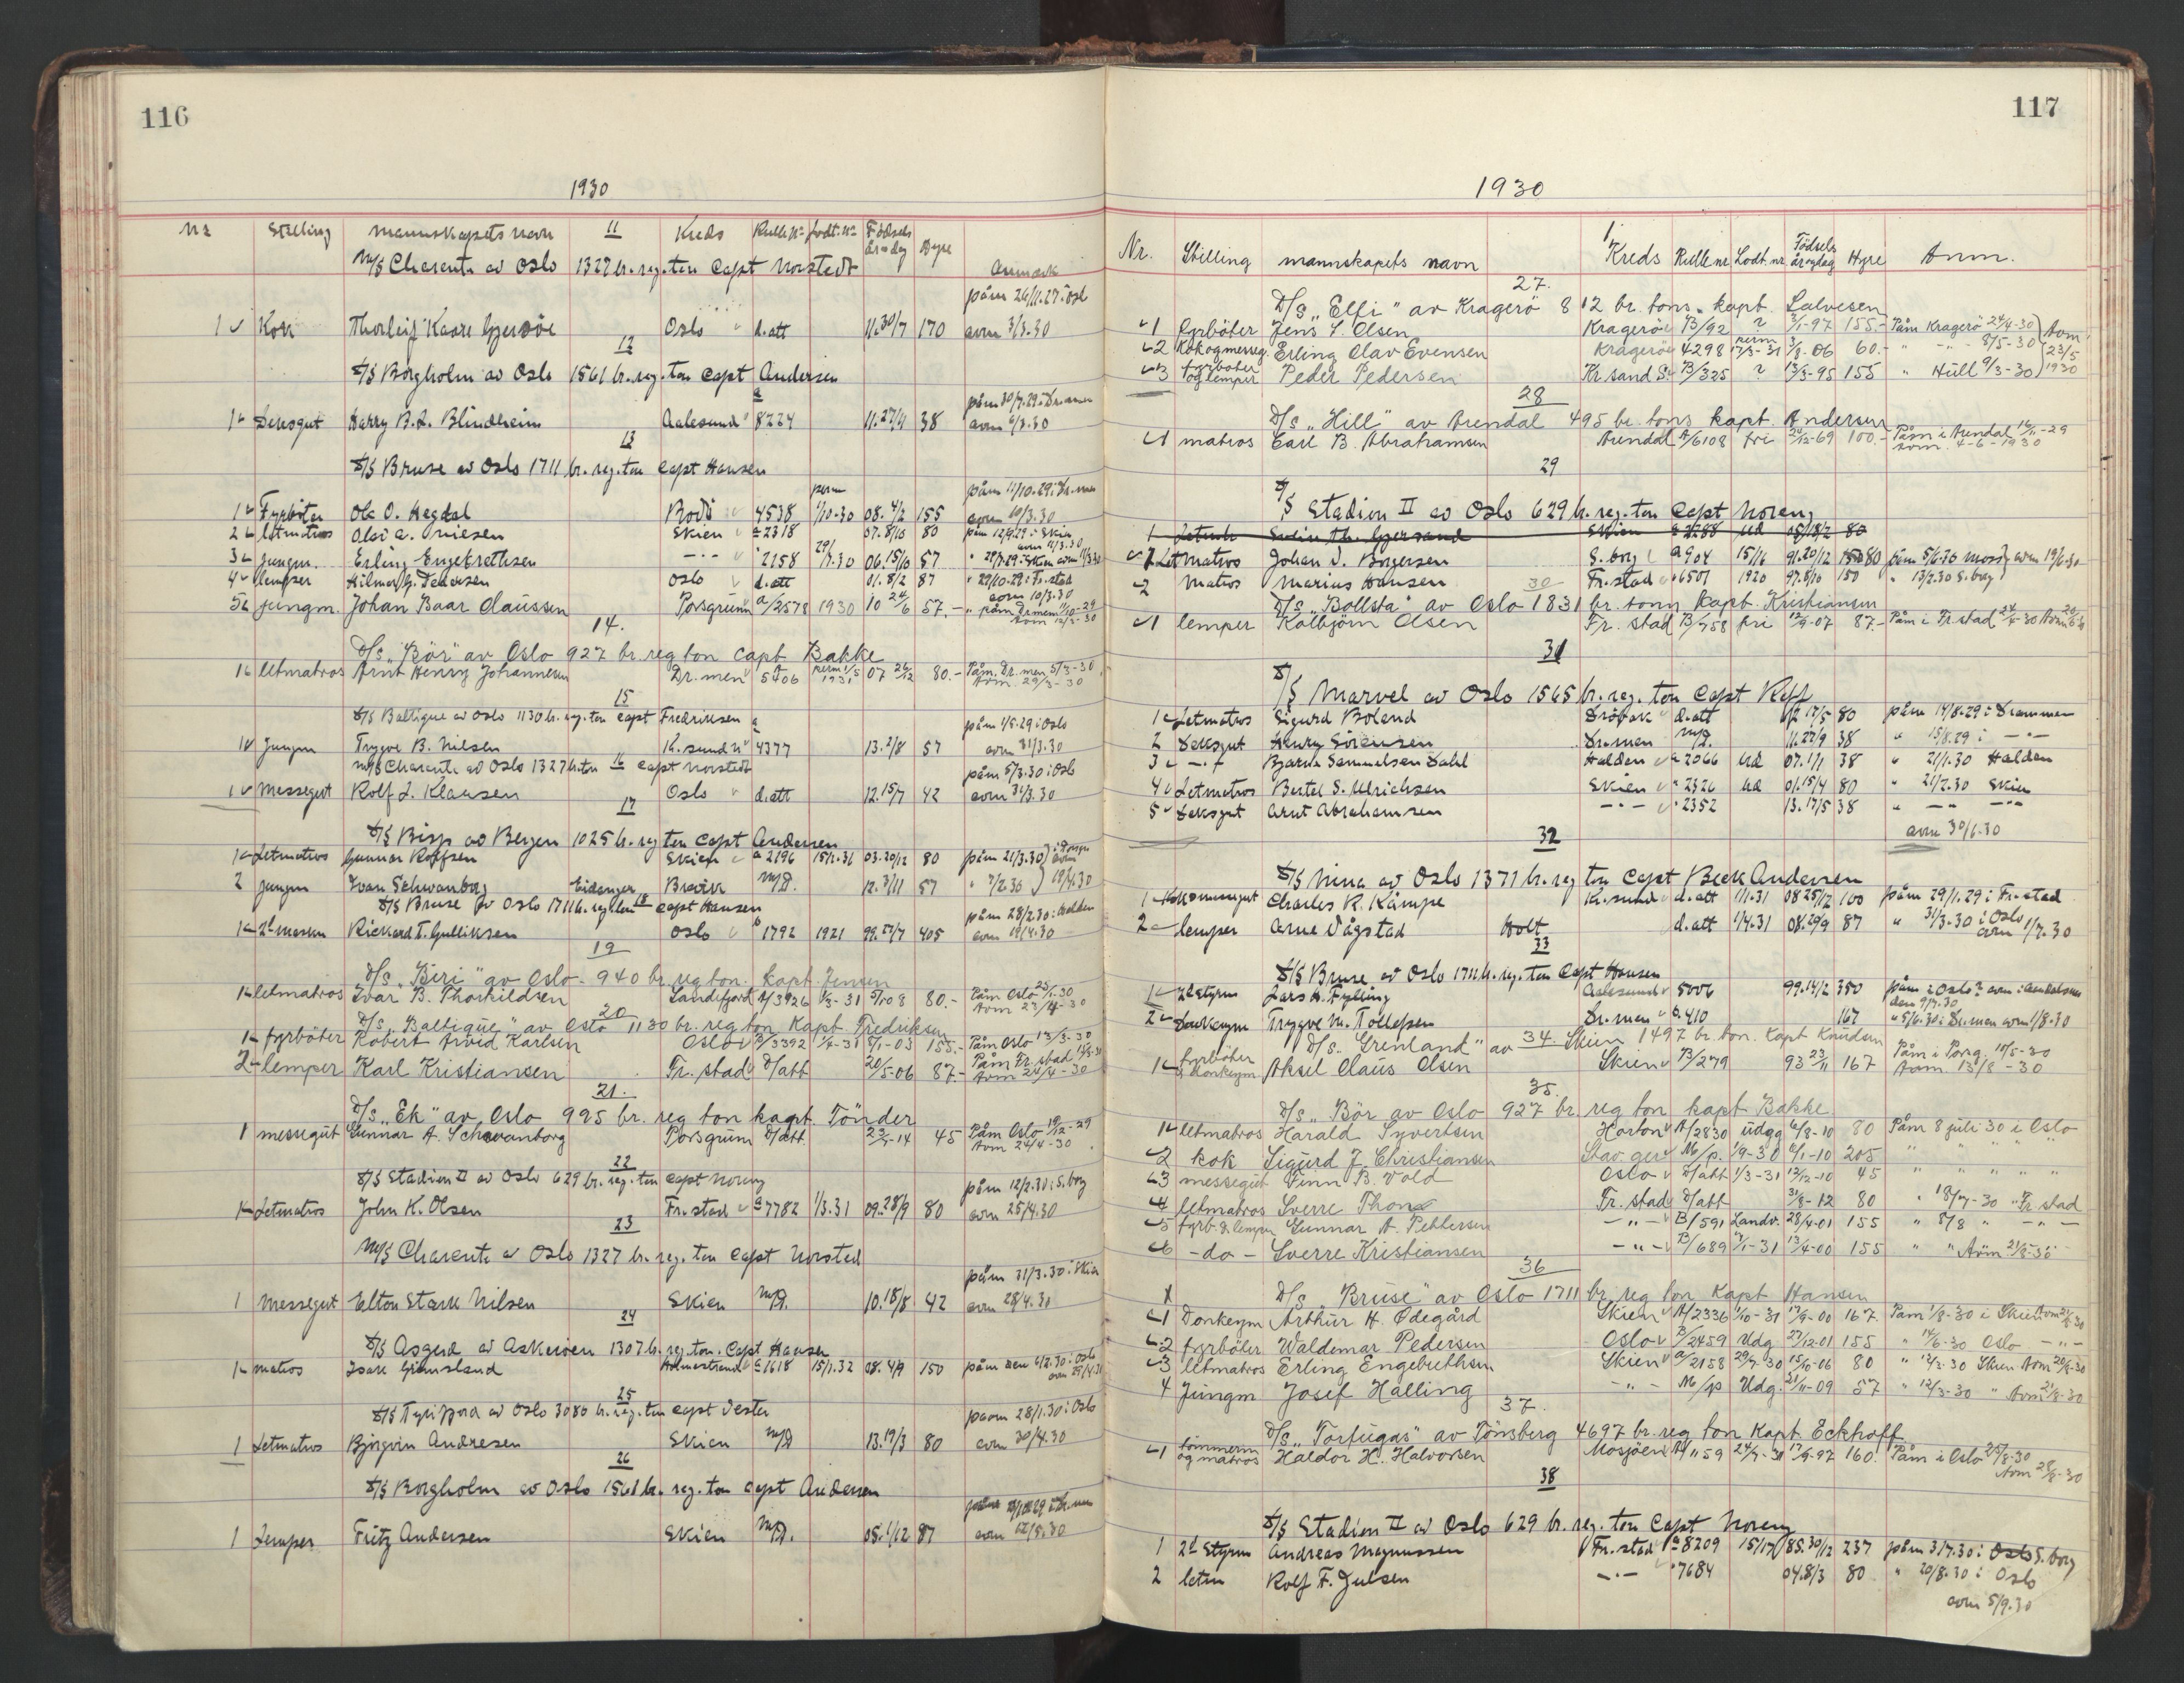 116
1930
Nr Stilling Mannskapets navn 11 Kreds Rulle Nr Lodt. Nr Fødsels år og dag Hyre Anmerk
M/S Charente av Oslo 1327 br. reg. ton Capt Norstedt
påm 26/11.29 i Oslo
1 Kok Thorleif Kaare Gjersöe Oslo d.att 11.30/7 170 avm 3/3.30
12
D/S Borgholm av Oslo 1561 br. reg. ton Capt Andersen
påm 30/7.29 i Drammen
1 Deksgut Harry B.L. Blindheim Aalesund a 8224 11.27/4 38 avm 6/3.30
13
D/S Bruse av Oslo 1711 br. reg. ton Capt Hansen
påm 11/10.29 i Dr.men
1 Fyrböter Ole O. Hegdal Bodö 4538 perm 1/10-30 08. 4/2 155 avm 10/3.30
2 letmatros Olai A. Skien a 2318 07. 8/10 80 påm 12/9.29 i Skien avm 11/3.30
3 jungm. Erling Engebrethsen —"— " 2158 29/7.30 06.15/10 57 " 28/9.29 i Skien avm 11/3.30
4 lemper Hilmar G. Pedersen Oslo d.att 01. 8/2 87 " 29/10.29 i Fr.stad avm 10/3.30
5 jungm. Johan Baar Claussen Porsgrunn a/2578 1930 10 24/6 57.- " påm Dr.men 11/10-29 Avm 12/3-30
14.
D/S "Bör" av Oslo 927 br. reg ton Capt Bakke
1 letmatros Arnt Henry Johannesen Dr. men A 5406 perm 1/5 1931 07 26/12 80.- Påm. Dr. men 5/3-30 Avm. 29/3-30
15
D/S Baltique av Oslo 1130 br. reg. ton Capt Fredriksen
påm 1/5.29 i Oslo
1 Jungm Trygve B. Nilsen K.sund N a 4377 13. 2/8 57 avm 31/3.30
M/S Charente av Oslo 1327 br. ton 16 Capt Norstedt
påm 5/3.30 i Oslo
1 Messegut Rolf L. Klausen Oslo d.att 12.15/7 42 avm 31/3.30
17
D/S Bisp av Bergen 1025 br. reg ton Capt Andersen
1 Letmatros Gunnar Roffsen Skien a 2196 15/1.31 03.20/12 80 påm 21/3.30
2 Jungm Ivar Schwanborg Eidanger Brevik M/P. 12. 3/11 57 " 7/2.30 avm 19/4.30
D/S Bruse av Oslo 1711 br. reg. ton 18 Capt Hansen
påm 28/2.30 i Halden
1 2d Maskn Rickard T. Gulliksen Oslo b 1792 1921 99.27/7 405 avm 19/4.30
19
D/S "Biri" av Oslo - 940 br. reg ton. Kapt Jensen
1 letmatros Ivar B. Thorkildsen Sandefjord A/3926 1/3-31 5/10 8 80.- Påm Oslo 23/1-30 Avm 23/4-30
20
D/S "Baltique" av Oslo 1130 br. reg ton Kapt Fredriksen
1 fyrböter Robert Arvid Karlsen Oslo B/3392 1/4-31 8/1-03 155.- Påm Oslo 13/3-30
2 lemper Karl Kristiansen Fr. stad D/att 20/5-06 87.- Påm Fr. stad 15/3-30 Avm 24/4-30
21.
D/S "Ek" av Oslo 995 br. reg ton kapt. Tönder
1 messegut Gunnar A. Schwanborg Porsgrunn D/att. 23/5-14 45 Påm Oslo 19/12-29 Avm 24/4-30
22
D/S Stadion II av Oslo 629 br. reg. ton Capt Noreng
påm 12/2.30 i S.borg
1 Letmatros John K. Olsen Fr.stad a 7782 1/3.31 09.28/9 80 avm 25/4.30
23
M/S Charente av Oslo 1327 br. reg. ton Capt Norsted
påm 31/3.30 i Skien
1 Messegut Elton Stark Nilsen Skien M/P. 10.18/8 42 avm 28/4.30
24
D/S Asgerd av Askeröen 1307 br. reg. ton. Capt Hansen
1 Matros Isak Gjemsland Holmestrand a 1618 15/1.32 08. 4/9 150 påm den 6/2.30 i Oslo avm 29/4.30
25
D/S Tyrifjord av Oslo 3080 br. reg. ton Capt Vester
paam 28/1.30 i Oslo
1 Letmatros Björgvin Andresen Skien M/P 13.19/3 80 avm 30/4.30
26
D/S Borgholm av Oslo 1561 br. reg. ton Capt Andersen
1 Lemper Fritz Andersen Skien M/P. 05. 1/12 87 avm 12/5.30
117
1930
Nr. Stilling Mannskapets navn Kreds Rulle nr Lodt. nr Födsels år og dag Hyre Anm.
27.
D/S "Elfi" av Kragerö 812 br. tons. kapt. Salvesen
1 fyrböter Jens S. Olsen Kragerö B/92 ? 3/1-97 155.- Påm Kragerö 24/4-30
2 Kok og messeg. Erling Olav Evensen Kragerö 4298 perm 17/3-31 3/8-06 60.- " —"— 8/5-30 Avm. 23/5 1930
3 fyrböter og lemper Peder Pedersen Kr.sand S. B/325 ? 13/3-95 155 " Hull 9/3-30
28
D/S "Hill" av Arendal 495 br. tons kapt. Andersen
1 matros Carl B. Abrahamsen Arendal A/6108 fri 24/12-69 100.- Påm i Arendal 16/11-29 Avm. 4-6-1930
29
D/S Stadion II av Oslo 629 br. reg. ton Capt Noreng
1 Letmatr Svein Th. Gjersand Skien a 2288 Ud 08/18/2 80
1 Let Matros Johan D. Borgersen S.borg a 904 15/16 91.20/12 150 80 påm 5/6.30 Moss avm 19/6.30
2 Matros Marius Hansen Fr.stad " 6501 1920 97.5/10 150 " 13/2.30 S.borg
30
D/S "Bollsta" av Oslo 1831 br. tonn Kapt. Kristiansen
1 lemper Kolbjörn Olsen Fr. stad B/758 fri 12/9-07 87.- Påm i Fr.stad 24/5-30 Avm 20/6-30
31
D/S Marvel av Oslo 1565 br. reg. ton Capt Reff
1 Letmatros Sigurd Boland Dröbak d.att 12 17/5 80 påm 14/8.29 i Drammen
2 Deksgut Henry Sörensen Drmen M/P. 11.27/9 38 " 15/8.29 i —"—
3 —"— Bjarne Semmelsen Dahl Halden a 2066 Ud 07.1/1 38 " 21/1.30 Halden
4 Letmatros Bertel S. Ulrichsen Skien " 2326 Ud 01.15/4 80 " 21/2.30 Skien
5 Deksgut Arnt Abrahamsen —"— " 2352 13. 17/5 38 " —"— —"—
avm 30/6.30
32
D/S Nina av Oslo 1371 br. reg ton Capt Beck Andersen
1 Kok o messegut Charles R. Kämpe Kr.sund d.att 1/1.31 08 25/12 100 påm 29/1.29 i Fr.stad
2 lemper Arne Vågstad Holt d.att 1/4.31 08.29/9 87 " 31/3.30 i Oslo avm 1/7.30
33
D/S Bruse av Oslo 1711 br. reg. ton Capt Hansen
1 2d styrm Lars A. Fylling Aalesund 5006 99.14/2 350 påm i Oslo? avm i Aandalsnes den 9/7.30
2 Donkeym Trygve M. Tollefsen Dr.men b. 410 167 " 5/6.30 i Dr.men avm 1/8.30
34
D/S "Grenland" av Skien 1497 br. ton. Kapt Knudsen
1 fyrböter & donkeym Aksel Claus Olsen Skien B/279 93 23/11 167 Påm i Porsg. 15/5-30 Avm. 13/8-30
35.
D/S "Bör" av Oslo 927 br. reg ton kapt Bakke.
1 letmatros Harald Syvertsen Horten A/2830 udgg 6/8-10 80 Påm 8 juli 30 i Oslo
2 kok Sigurd J. Christiansen Stav.ger M/p. 1/9-30 6/1-10 205 " " " " "
3 messegut Finn B. Vold Oslo D/att 1/3-31 12/12-10 45 " " " " "
4 letmatros Sverre Thon Fr. stad D/att 31/8-12 80 " 18/7-30 " Fr stad
5 fyrb. & lemper Gunnar A. Pettersen —"— B/591 Landv. 28/4-01 155 " 8/8 " —"—
6 -do- Sverre Kristiansen —"— B/689 1/1-31 13/4-00 155 " " Avm 21/8-30
36
X D/S "Bruse" av Oslo 1711 br. reg ton Kapt Hansen
1 Donkeym Arthur H. Ödegård Skien A/2336 1/10-31 17/9-00 167. Påm 1/8-30 i Skien Avm 21/8-30
2 fyrböter Waldemar Pedersen Oslo B/2459 Udg 27/12-01 155 " 14/6-30 Oslo —"—
3 letmatros Erling Engebrethsen Skien a/2158 29/7-30 15/10-06 80 " 12/3-30 Skien Avm 20/8-30
4 Jungm Josef Halling —"— M/p Udg. 21/11-09 57 " 12/3-30 " Avm 21/8-30
37.
D/S "Tortugas" av Tönsberg 4697 br. reg ton Kapt. Eckhoff
1 tömmerm og matros Haldor H. Halvorsen Mosjöen A/1159 24/9-31 17/9-97 160. Påm i Oslo 25/8-30 Avm 28/8-30
38
D/S Stadion II av Oslo 629 br. reg. ton Capt Noreng
1 2d Styrm Andreas Magnussen Fr.stad a 8209 15/17 85.30/12 237 påm 3/7.30 i Oslo S.borg
2 letm Rolf F. Julsen —"— " 7684 04.8/3 80 " 20/8.30 i Oslo
avm 5/9.30